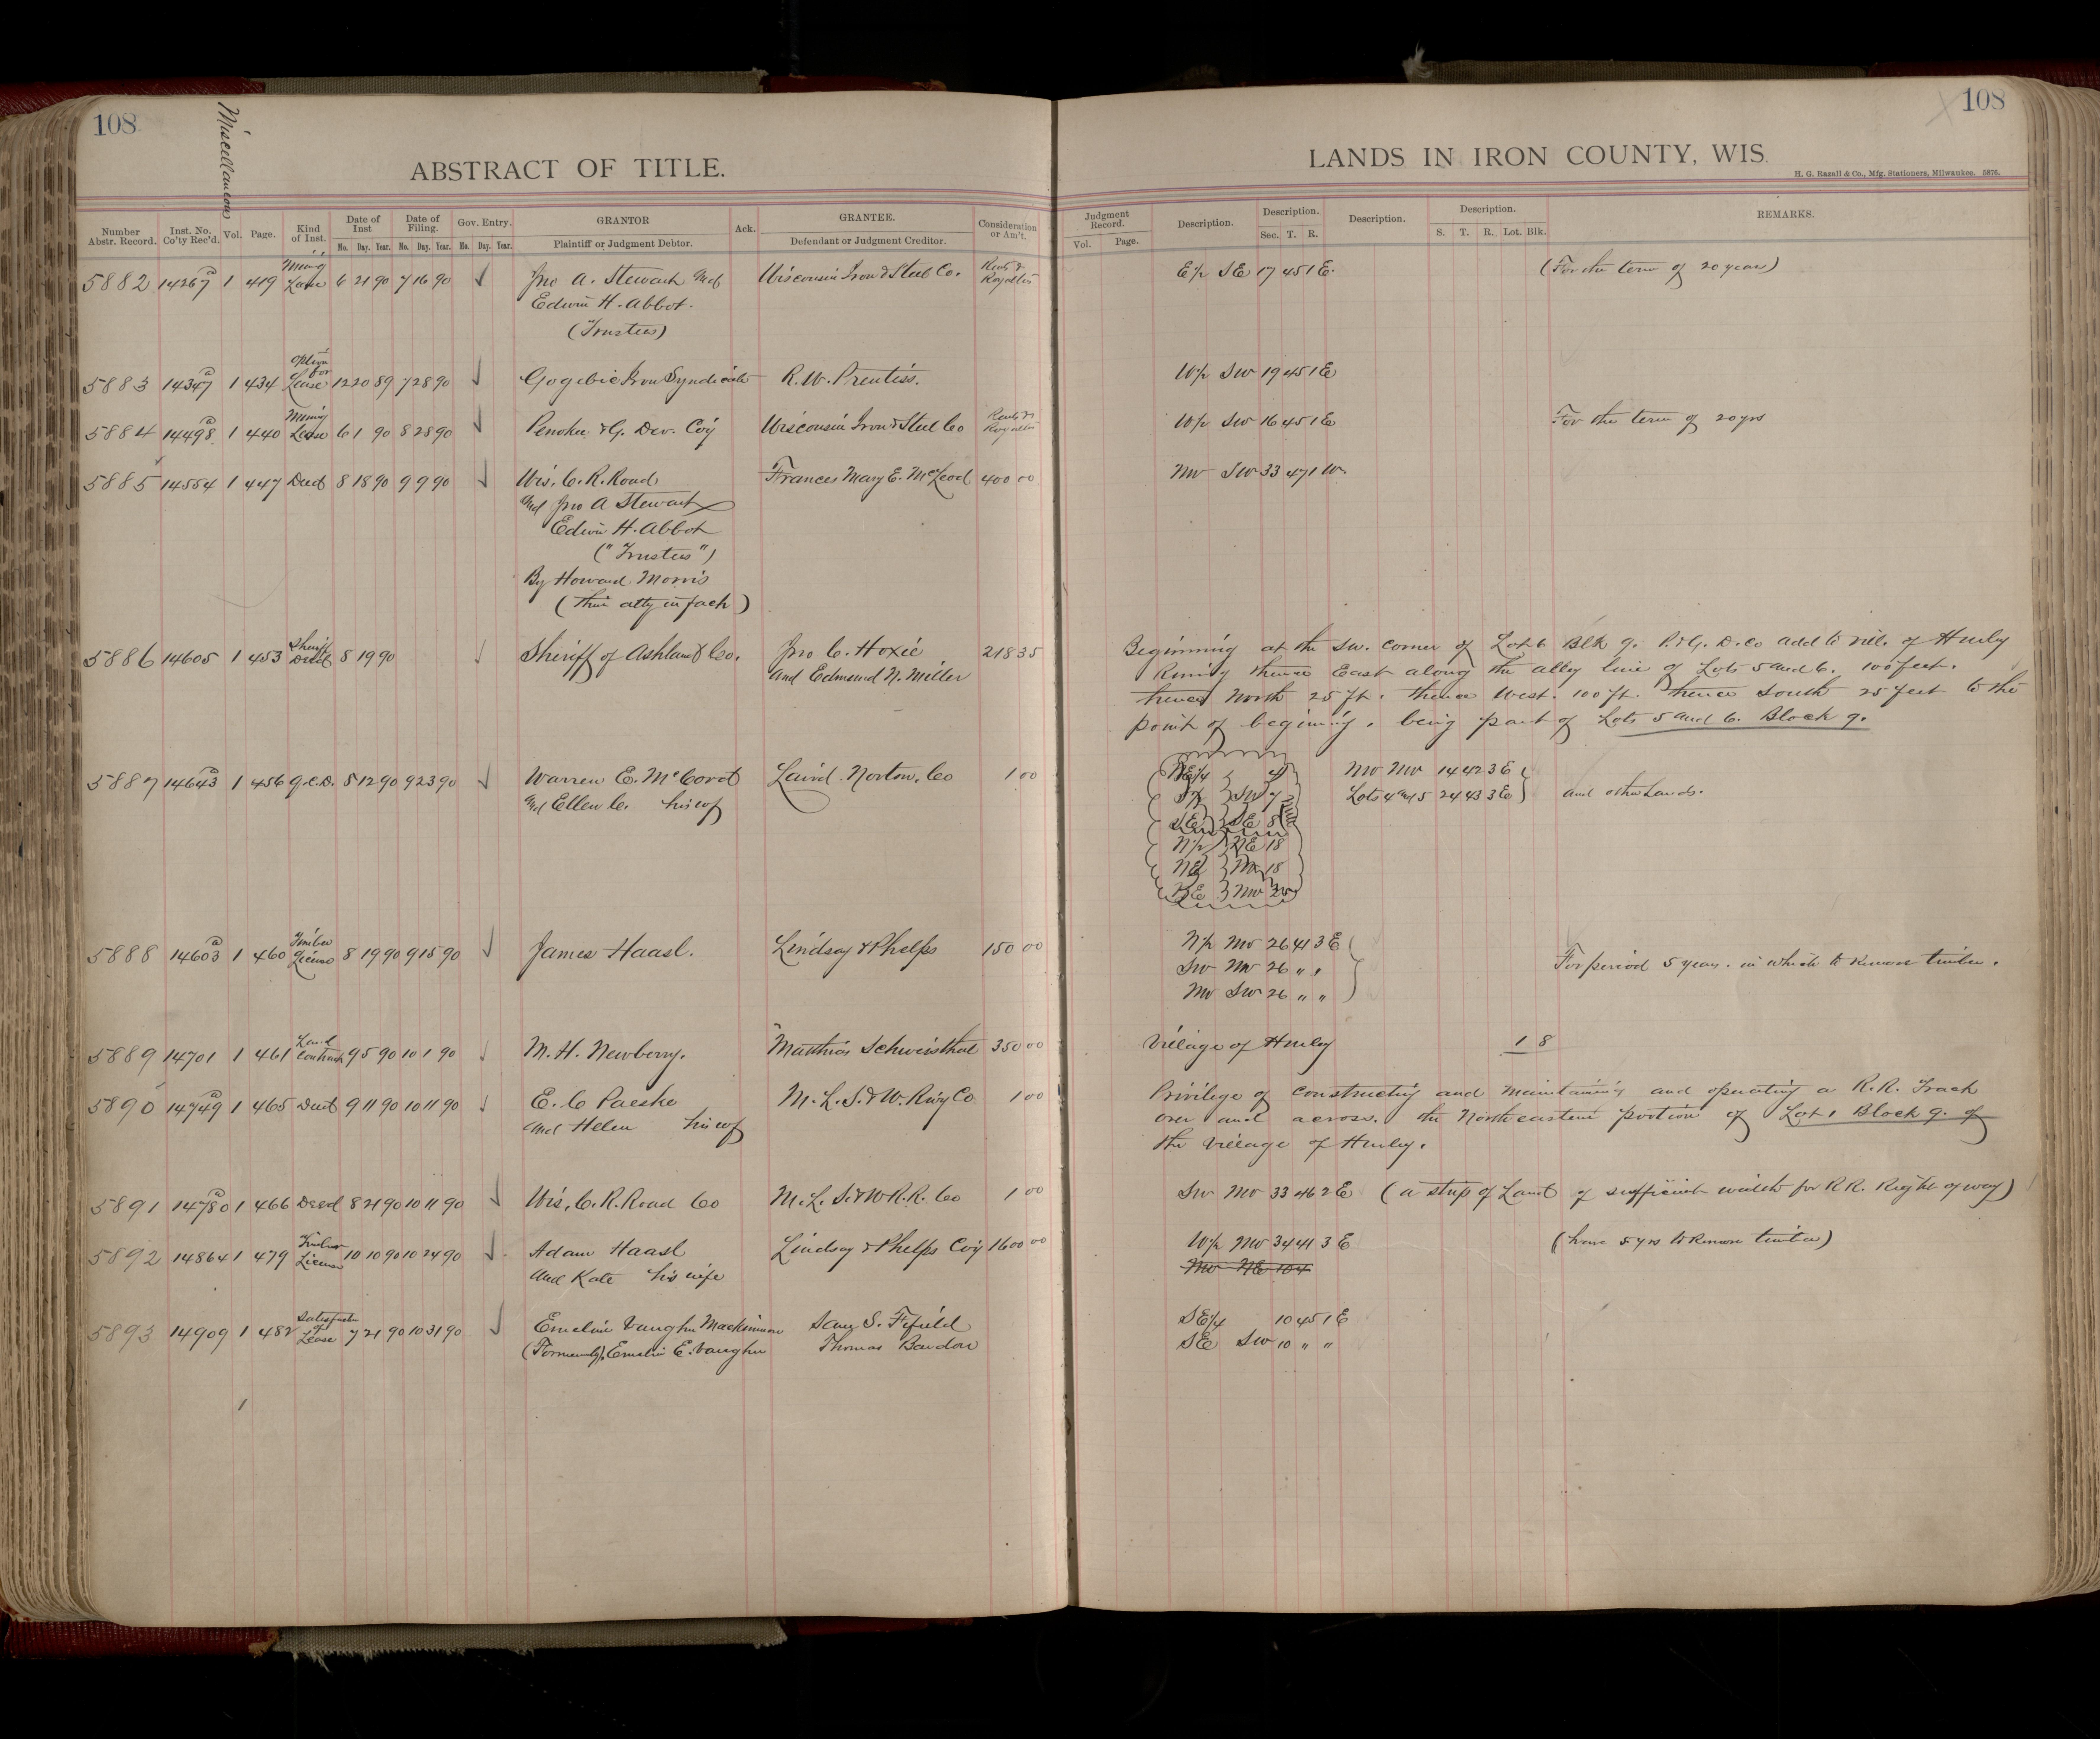 108
Miscellaneous
ABSTRACT OF TITLE.
Number Abstr. Record. Inst. No. Co'ty Rec'd. Vol. Page. Kind of Inst. Date of Inst Date of Filing. Gov. Entry. GRANTOR Ack. GRANTEE. Consideration or Am't.
Mo. Day. Year. Mo. Day. Year. Mo. Day. Year. Plaintiff or Judgment Debtor. Defendant or Judgment Creditor.
5882 14267 a 1 419 Mining Lease 6 21 90 7 16 90 ✓ Jno A. Stewart and Wisconsin Iron & Steel Co. Rents & Royalties
Edwin H. Abbot.
(Trustees)
5883 14347 a 1 434 Option for Lease 12 20 89 7 28 90 ✓ Gogebic Iron Syndicate R. W. Prentiss.
5884 14498 a 1 440 Mining Lease 6 1 90 8 28 90 ✓ Penokee & G. Dev. Coy Wisconsin Iron & Steel Co Rents & Royalties
5885 14554 1 447 Deed 8 18 90 9 9 90 ✓ Wis. C. R. Road Frances Mary E. McLeod 400 00
and Jno A Stewart
Edwin H. Abbot
("Trustees")
By Howard Morris
(their atty in fact)
5886 14605 1 453 Sheriff Deed 8 19 90 ✓ Sheriff of Ashland Co. Jno C. Hoxie 218 35
and Edmund N. Miller
5887 14643 a 1 456 Q.C.D. 8 12 90 9 23 90 ✓ Warren E. McCord Laird Norton Co 1 00
and Ellen C. his wf
5888 14603 a 1 460 Timber License 8 19 90 9 15 90 ✓ James Haasl. Lindsay & Phelps 150 00
5889 14701 1 461 Land Contract 9 5 90 10 1 90 ✓ M. H. Newberry. Matthias Schweisthal 350 00
5890 14749 a 1 465 Deed 9 11 90 10 11 90 ✓ E. C Paeske M. L. S. & W. Rwy Co 1 00
and Helen his wf
5891 14780 a 1 466 Deed 8 21 90 10 11 90 ✓ Wis. C. R. Road Co M. L. S. & W R.R. Co 1 00
5892 14864 1 479 Timber License 10 10 90 10 24 90 ✓ Adam Haasl Lindsay & Phelps Coy 1600 00
and Kate his wife
5893 14909 1 482 Satisfactn of Lease 7 21 90 10 31 90 ✓ Emeline Vaughn Mackinnon Sam S. Fifield
(Formerly) Emelin E. Vaughn Thomas Bardon
108
LANDS IN IRON COUNTY, WIS.
H. G. Razall & Co., Mfg. Stationers, Milwaukee. 5876.
Judgment Record. Description. Description. Description. Description. REMARKS.
Vol. Page. Sec. T. R. S. T. R. Lot. Blk.
E/2 SE 17 45 1 E. (For the term of 20 years)
W/2 SW 19 45 1 E
W/2 SW 16 45 1 E For the term of 20 yrs
NW SW 33 47 1 W.
Beginning at the SW. corner of Lot 6 Blk 9. P. & G. D. Co add to vill. of Hurley
Runing thence East along the alley line of Lots 5 and 6. 100 feet.
thence North 25 ft. thence West. 100 ft. thence South 25 feet to the
point of begining. being part of Lots 5 and 6. Block 9.
NE/4 NW NW 14 42 3 E
SW 7 Lots 4 and 5 24 43 3 E and other Lands.
SE SE 8
N/2 NE 18
NE NW 18
SE NW
N/2 NW 26 41 3 E
SW NW 26 " " For period 5 years. in which to remove timber.
NW SW 26 " "
Village of Hurley 1 8
Privilege of constructing and maintaining and operating a R.R. Track
over and across. the Northeastern portion of Lot 1 Block 9. of
the Village of Hurley.
SW NW 33 46 2 E (a strip of Land of sufficient width for RR. Right of way)
W/2 NW 34 41 3 E (have 5 yrs to Remove timber)
NW NE 10 4
SE/4 10 45 1 E
SE SW 10 " "